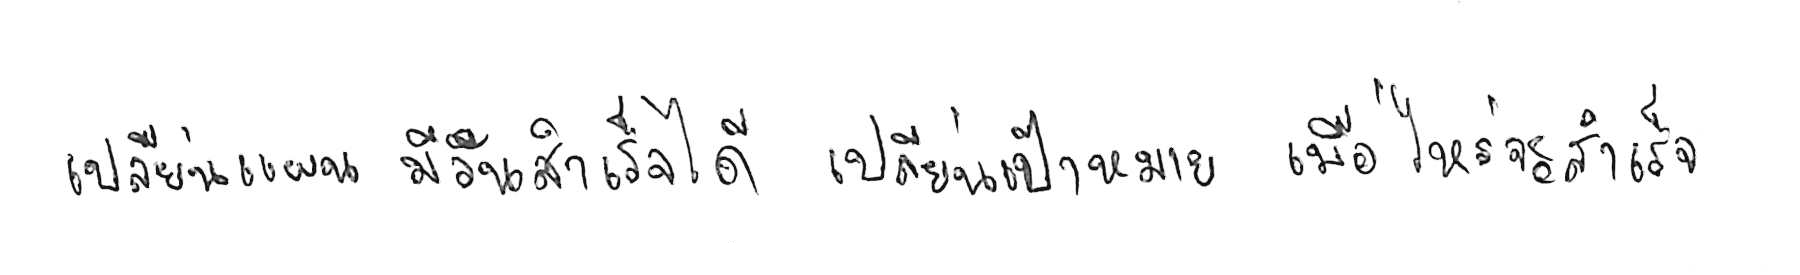 เปลี่ยนแผน มีวันสำเร็จได้ดี เปลี่ยนเป้าหมาย เมื่อไหร่จะสำเร็จ